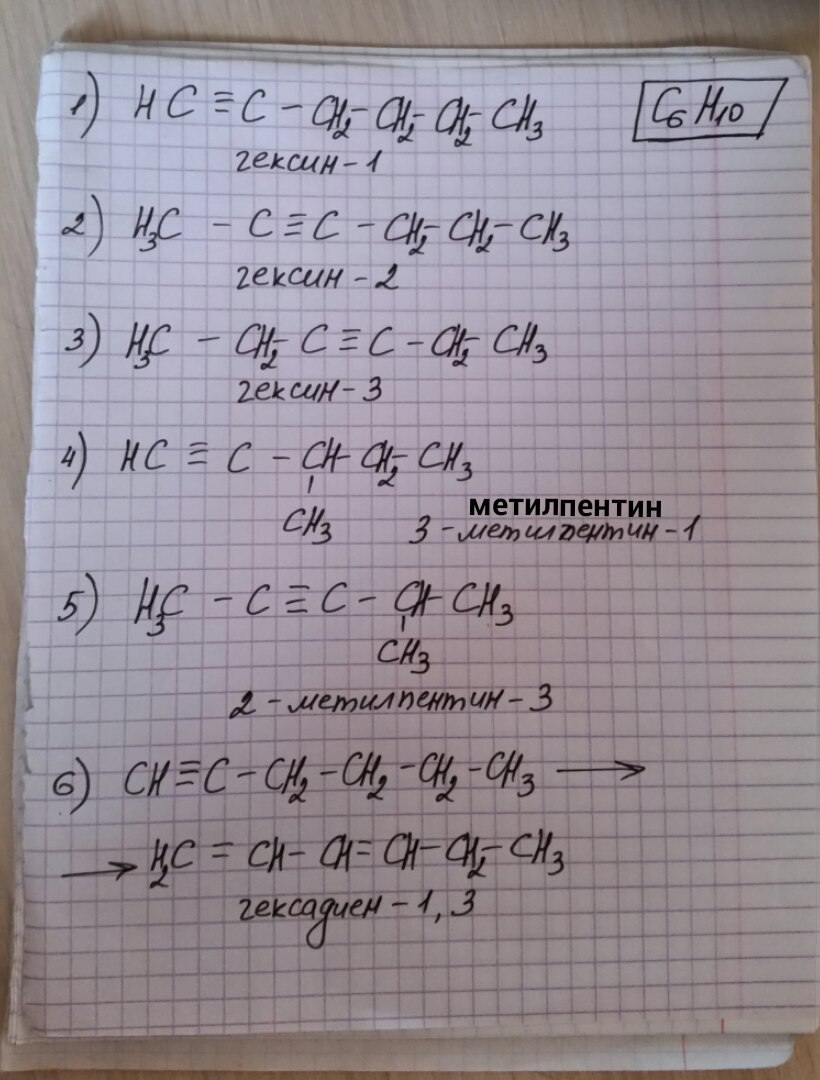 1) HC ≡ C - CH₂- CH₂- CH₂- CH₃
C₆H₁₀
гексин - 1
2) H₃C - C ≡ C - CH₂- CH₂- CH₃
гексин - 2
3) H₃C - CH₂- C ≡ C - CH₂- CH₃
гексин - 3
4) HC ≡ C - CH- CH₂- CH₃
CH₃
метилпентин
3 - метилпентин - 1
5) H₃C - C ≡ C - CH- CH₃
CH₃
2 - метилпентин - 3
6) CH ≡ C - CH₂ - CH₂ - CH₂ - CH₃ →
→ H₂C = CH- CH= CH- CH₂- CH₃
гексадиен - 1, 3